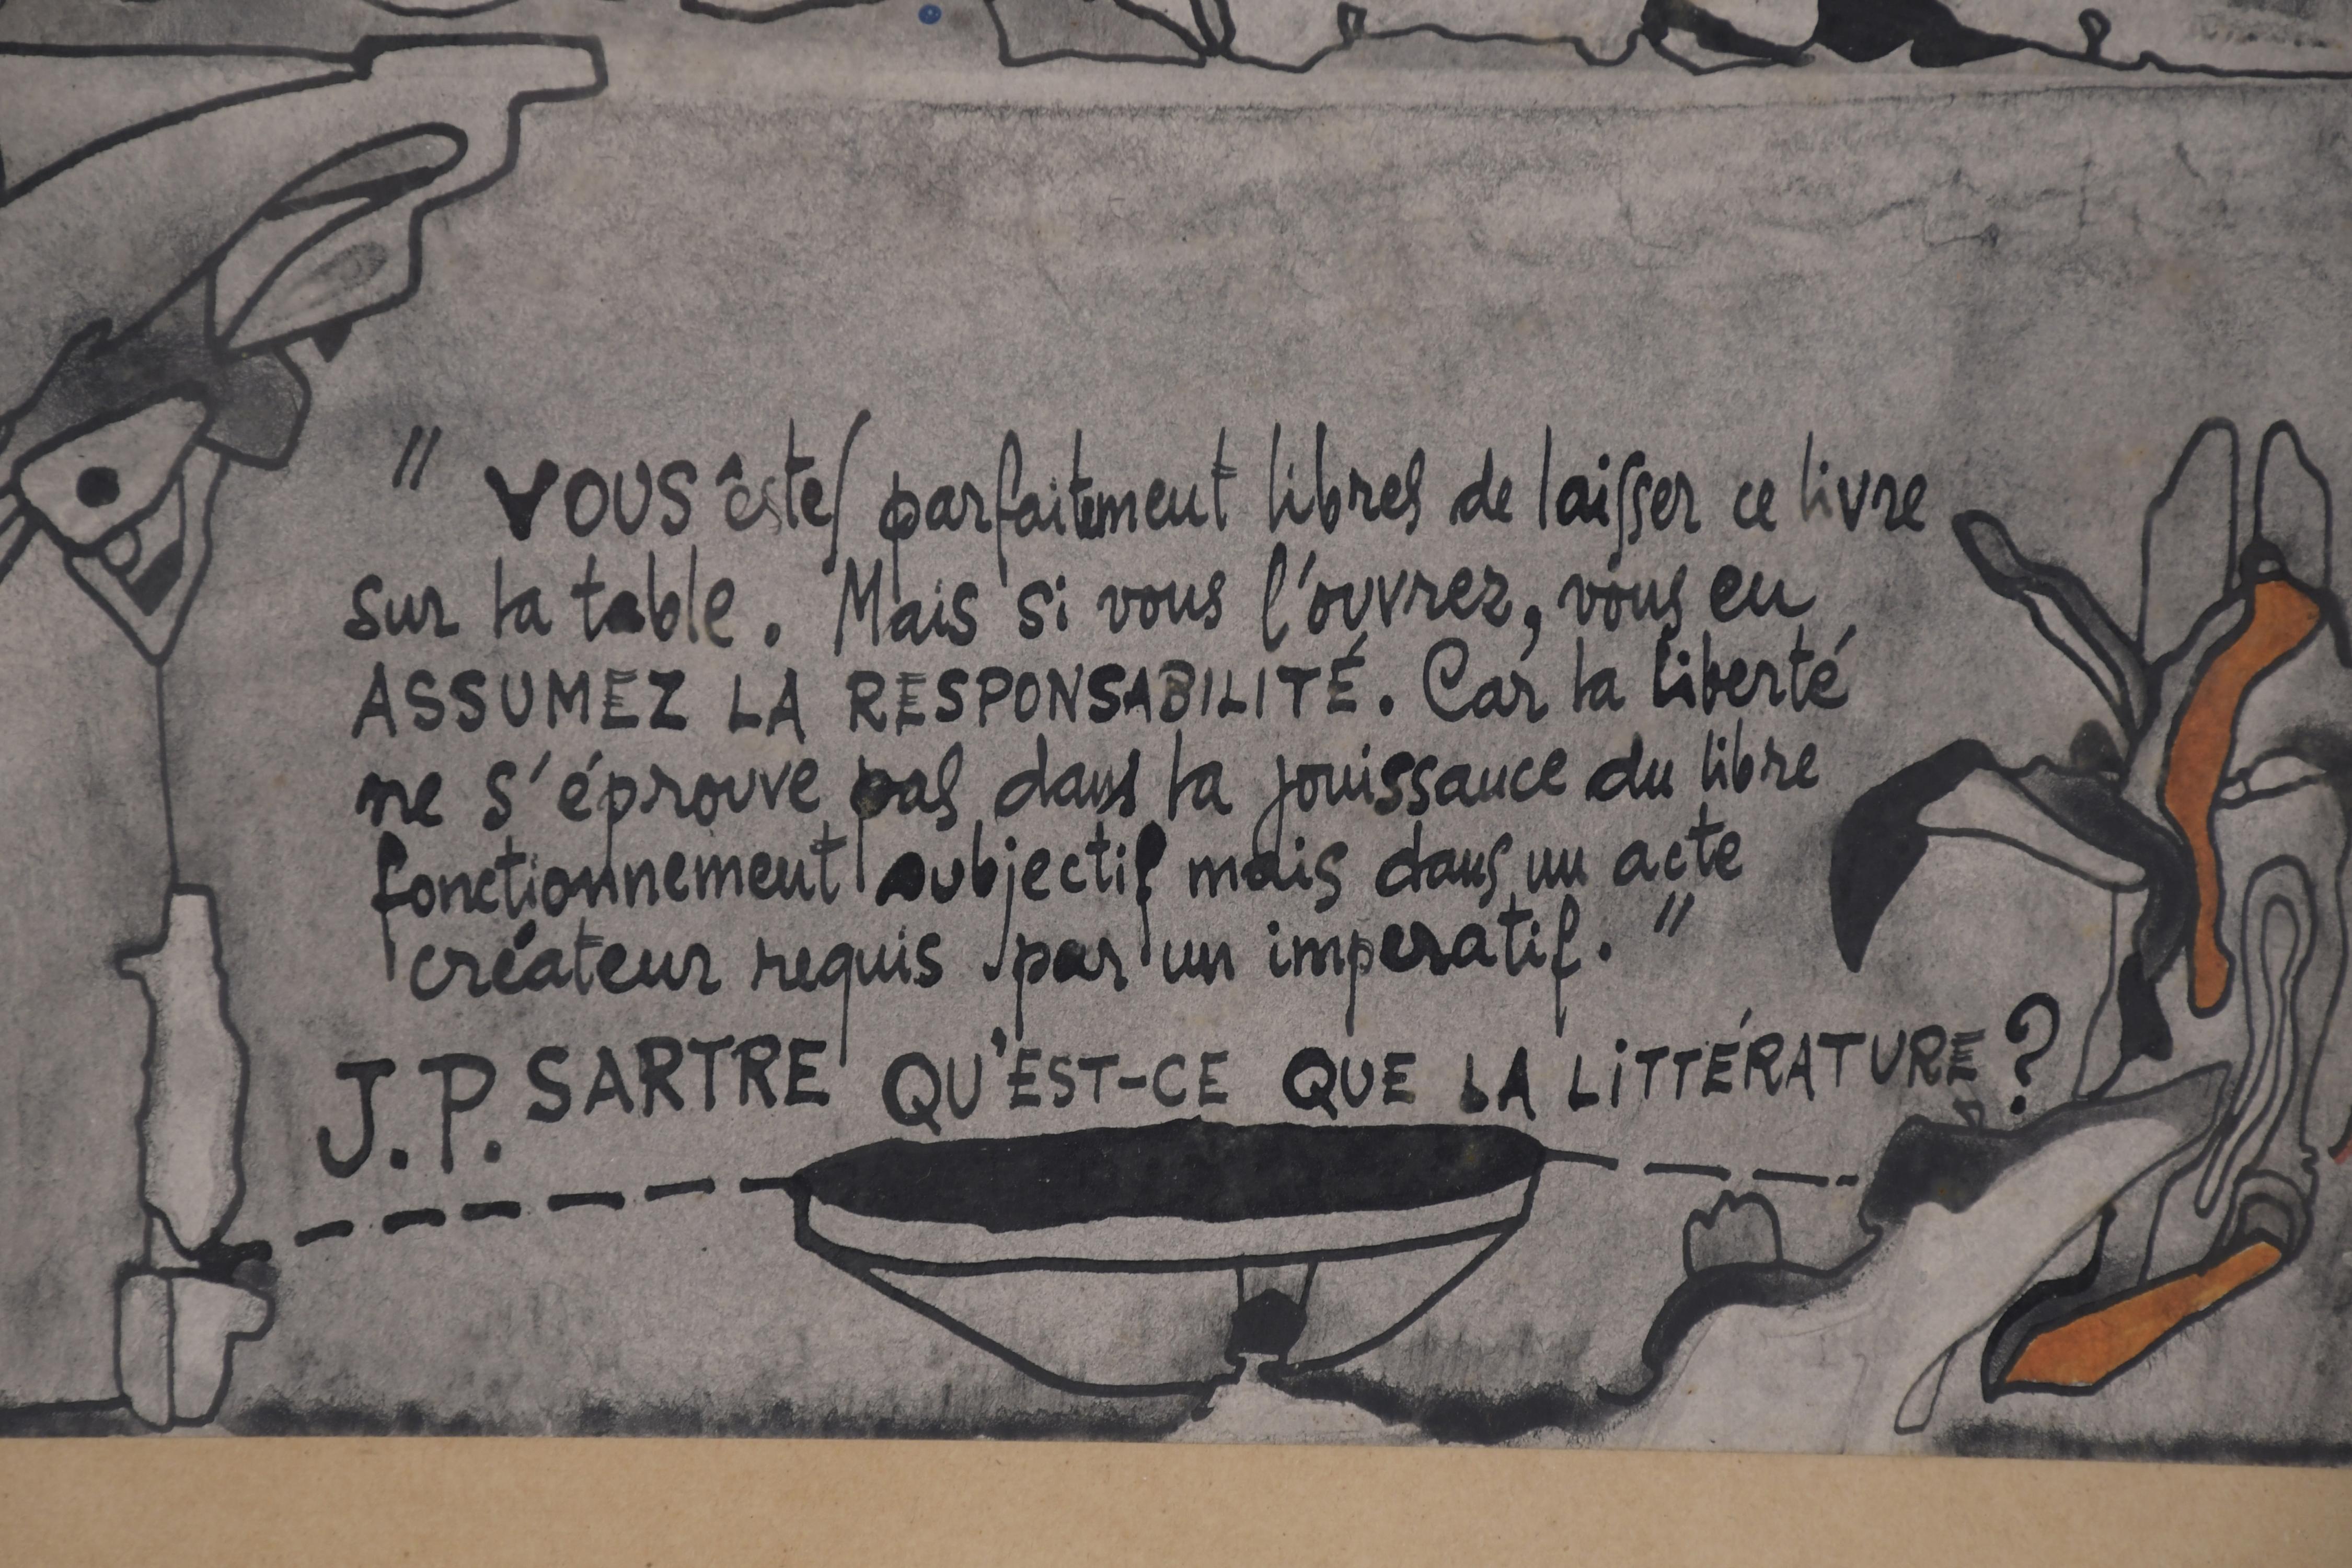 " VOUS êstes parfaitement libres de laisser ce livre
sur la table. Mais si vous l'ouvrez, vous en
ASSUMEZ LA RESPONSABILITÉ. Car la liberté
ne s'éprouve pas dans la jouissance du libre
fonctionnement subjectif mais dans un acte
créateur requis par un impératif. "
J.P. SARTRE QU'EST-CE QUE LA LITTÉRATURE ?